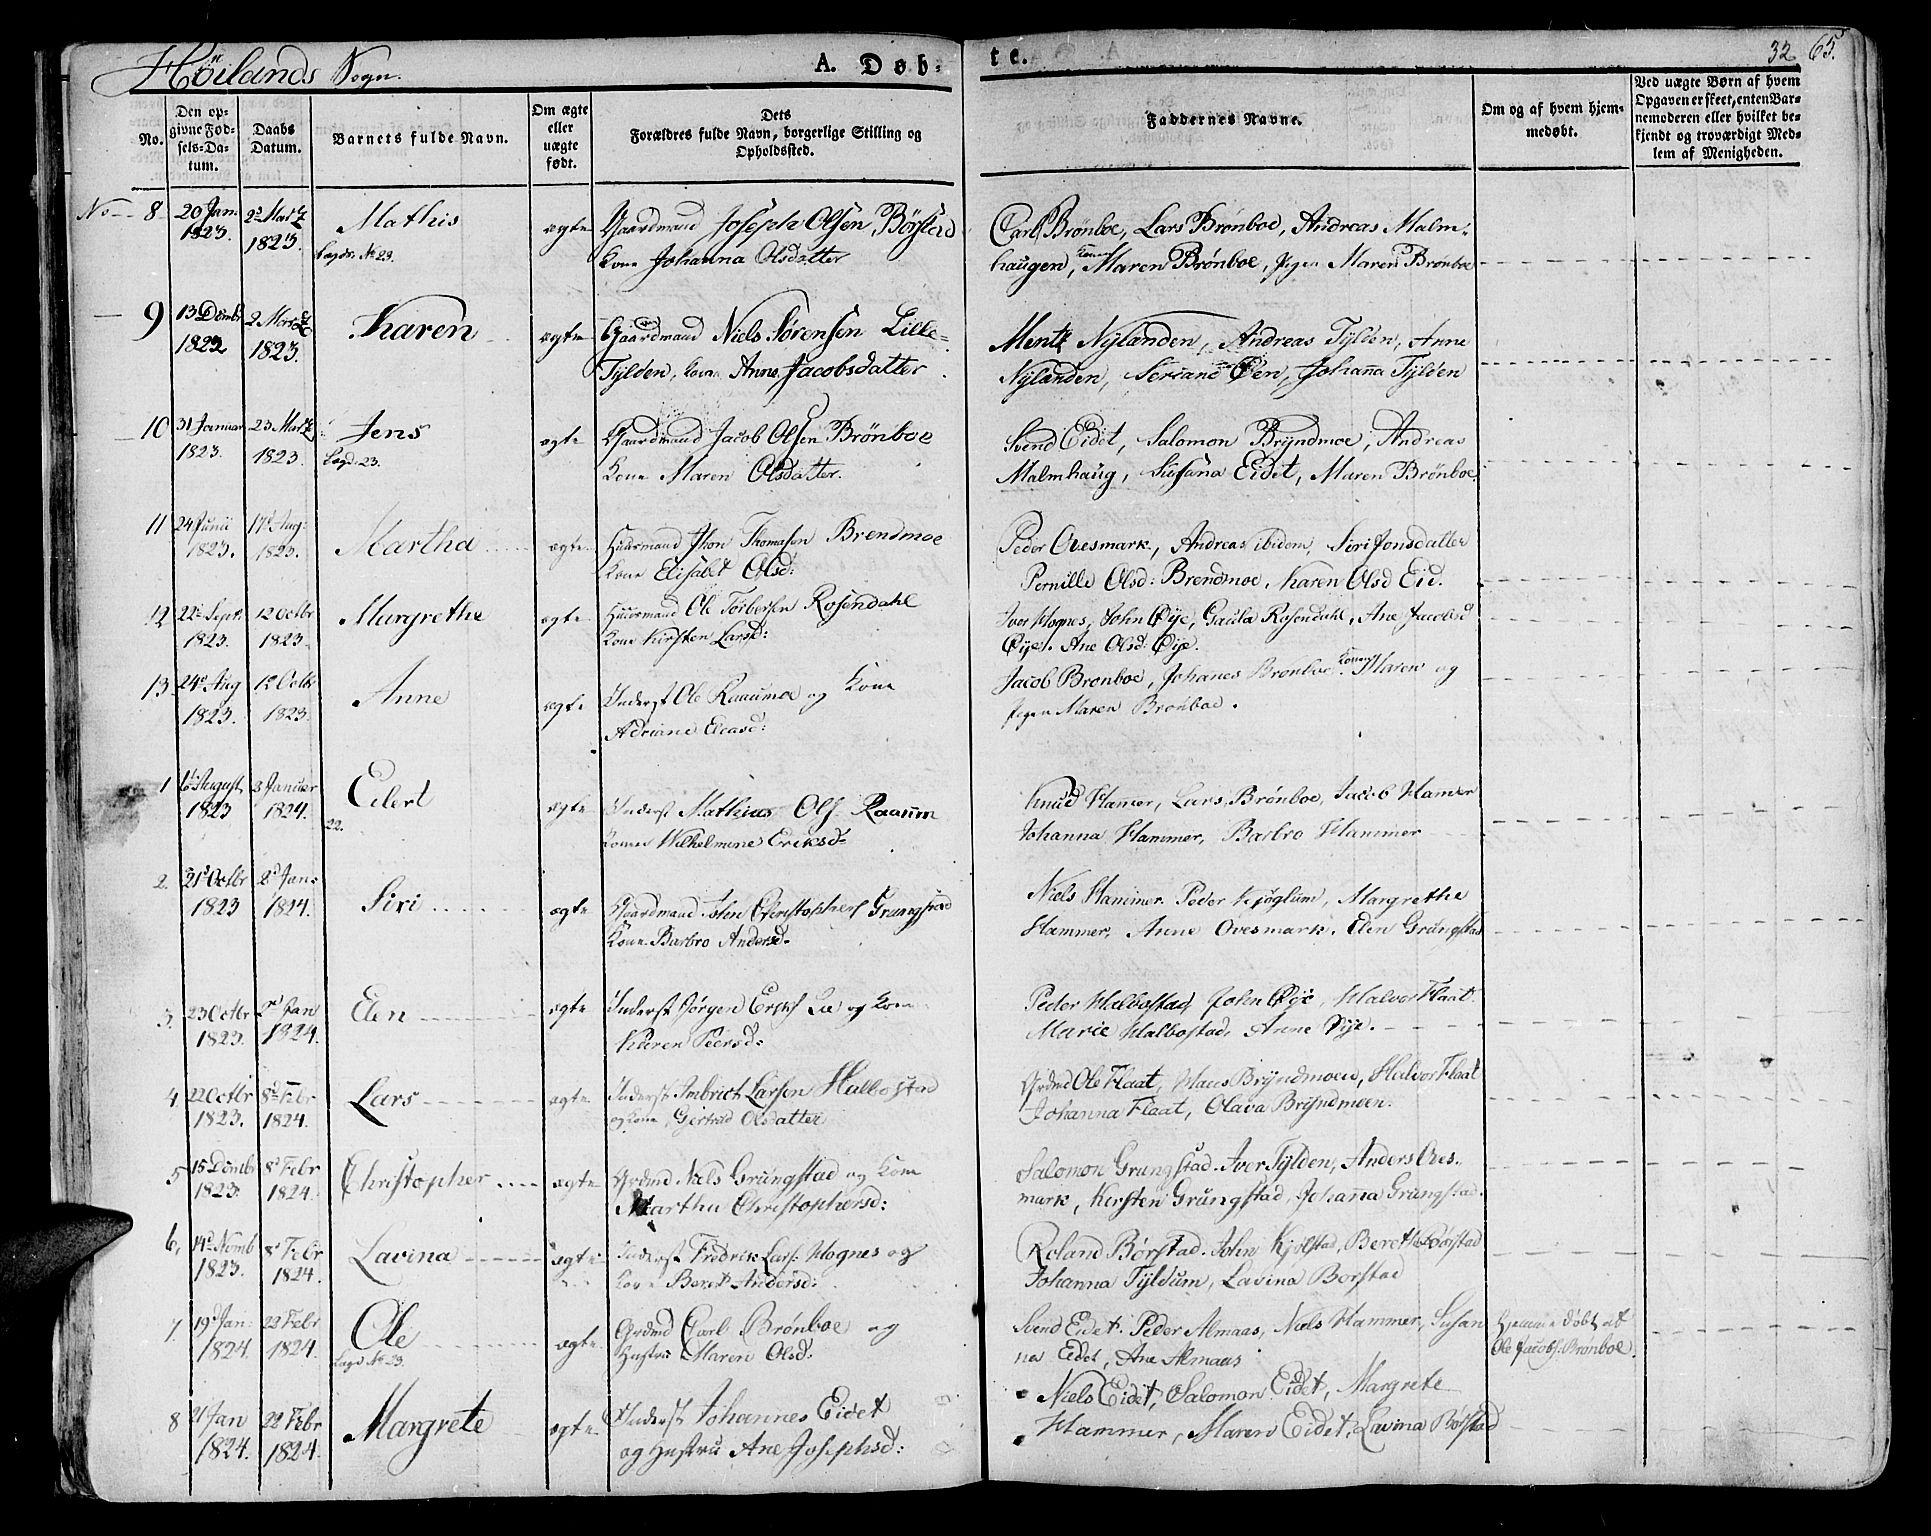 Höilands Sogn.
A. Døb-
te.
32 65.
No.
Den op-
givne Fød-
sels-Da-
tum.
Daabs
Datum.
Barnets fulde Navn.
Om ægte
eller
uægte
født.
Dets
Forældres fulde Navn, borgerlige Stilling og
Opholdssted.
Faddernes Navne.
Om og af hvem hjem-
medøbt.
Ved uægte Børn af hvem
Opgaven er skeet, enten Bar-
nemoderen eller hvilket be-
kjendt og troværdigt Med-
lem af Menigheden.
No 8 20 Jan 1823. 2 Martz 1823. Mathis ægte Gaardmand Joseph Olsen Børstad
Kone Johanna Olsdatter
Carl Brønboe, Lars Brønboe, Andreas Malm-
haugen, Kone Maren Brønboe, Pigen Maren Brønboe
9 13 Dcmbr 1822 2 Martz 1823. Karen ægte Gaardmand Niels Sørensen Lille-
Tylden, Kone Anne Jacobsdatter
Nylanden, Andreas Tylden, Anne
Nylanden, Seriane Øen, Johanna Tylden
10 31 Januar 1823. 23 Martz 1823. Jens
Lagd. 23.
ægte Gaardmand Jacob Olsen Brönboe
Kone Maren Olsdatter.
Svend Eidet, Salomon Bryndmoe, Andreas
Malmhaug, Susana Eidet, Maren Brønboe
11 24 Junii 1823. 17 Aug: 1823. Martha ægte Huusmand Jhon Thomasen Brendmoe
Kone Elisabet Olsd:
Peder Ovesmark, Andreas ibidem, Siri Jonsdatter
Pernille Olsd: Brendmoe, Karen Olsd Eid.
12 22 Septr 1823. 12 Octbr 1823. Margrethe ægte Huusmand Ole Torbersen Rosendahl
Kone Kirsten Larsd:
Iver Hognes, John Øye, Gaula Rosendahl, Ane Jacobsd
Øye, Ane Olsd: Øye.
13 24 Aug 1823. 12 Octbr 1823. Anne ægte Inderst Ole Raaumoe og Kone
Adriane Eleasd:
Jacob Brønboe, Johanes Brønboe, Konen Maren og
Pigen Maren Brønboe.
1 16 August 1823 2 Januar 1824. Eilert
22.
ægte Inderst Mathias Ols. Raaum
Kone Wilhelmine Eriksd-
Knud Hamer, Lars Brønboe, Jacob Hamer
Johanna Hammer, Barbro Hammer
2. 21 Octbr 1823 2 Jan: 1824. Siri ægte Gaardmand John Christophers Grungstad
Kone Barbro Andersd-
Niels Hammer. Peder Kjøglum, Margrethe
Hammer, Anne Ovesmark. Elen Grungstad
3. 23 Octbr 1823. 2 Jan 1824. Elen ægte Inderst Jørgen Eriks Lie og Kone
Karen Peersd:
Peder Halbostad, John Øye, Halvor Flaat
Marie Halbostad, Anne Øye.
4. 22 Octbr 1823. 8 Febr 1824. Lars ægte Inderst Imbrict Larsen Halbostad
og Kone Giertrud Olsdatter
Grdmd Ole Flaat, Hans Bryndmoen, Halvor Flaat
Johanna Flaat, Olava Bryndmoen.
5 15 Dcmbr 1823. 8 Febr 1824. Christopher ægte Grdmd Niels Grungstad og Kone
Martha Christophersd:
Salomon Grungstad. Iver Tylden, Anders Oves-
mark, Kirsten Grungstad, Johanna Grungstad.
6. 14 Nvmb 1823. 8 Febr 1824. Lavina ægte Inderst Fredrik Lars: Hognes og
Kone Beret Andersd:
Roland Børstad. John Kjølstad, Bereth Børstad
Johanna Tyldum, Lavina Borstad
7. 19 Jan: 1824. 22 Febr 1824. Ole
Lagd No 23.
ægte Grdmd Carl Brønboe og
Hustru Maren Olsd:
Svend Eidet. Peder Almaas, Niels Hammer, Susan
na Eidet, Ane Almaas
Hjemme døbt af
Ole Jacobs. Brønboe.
8 21 Jan 1824. 22 Febr 1824. Margrete ægte Inderst Johannes Eidet
og Hustru Ane Josephsd:
Niels Eidet, Salomon Eidet, Margrete
Hammer, Maren Eidet, Lavina Børstad